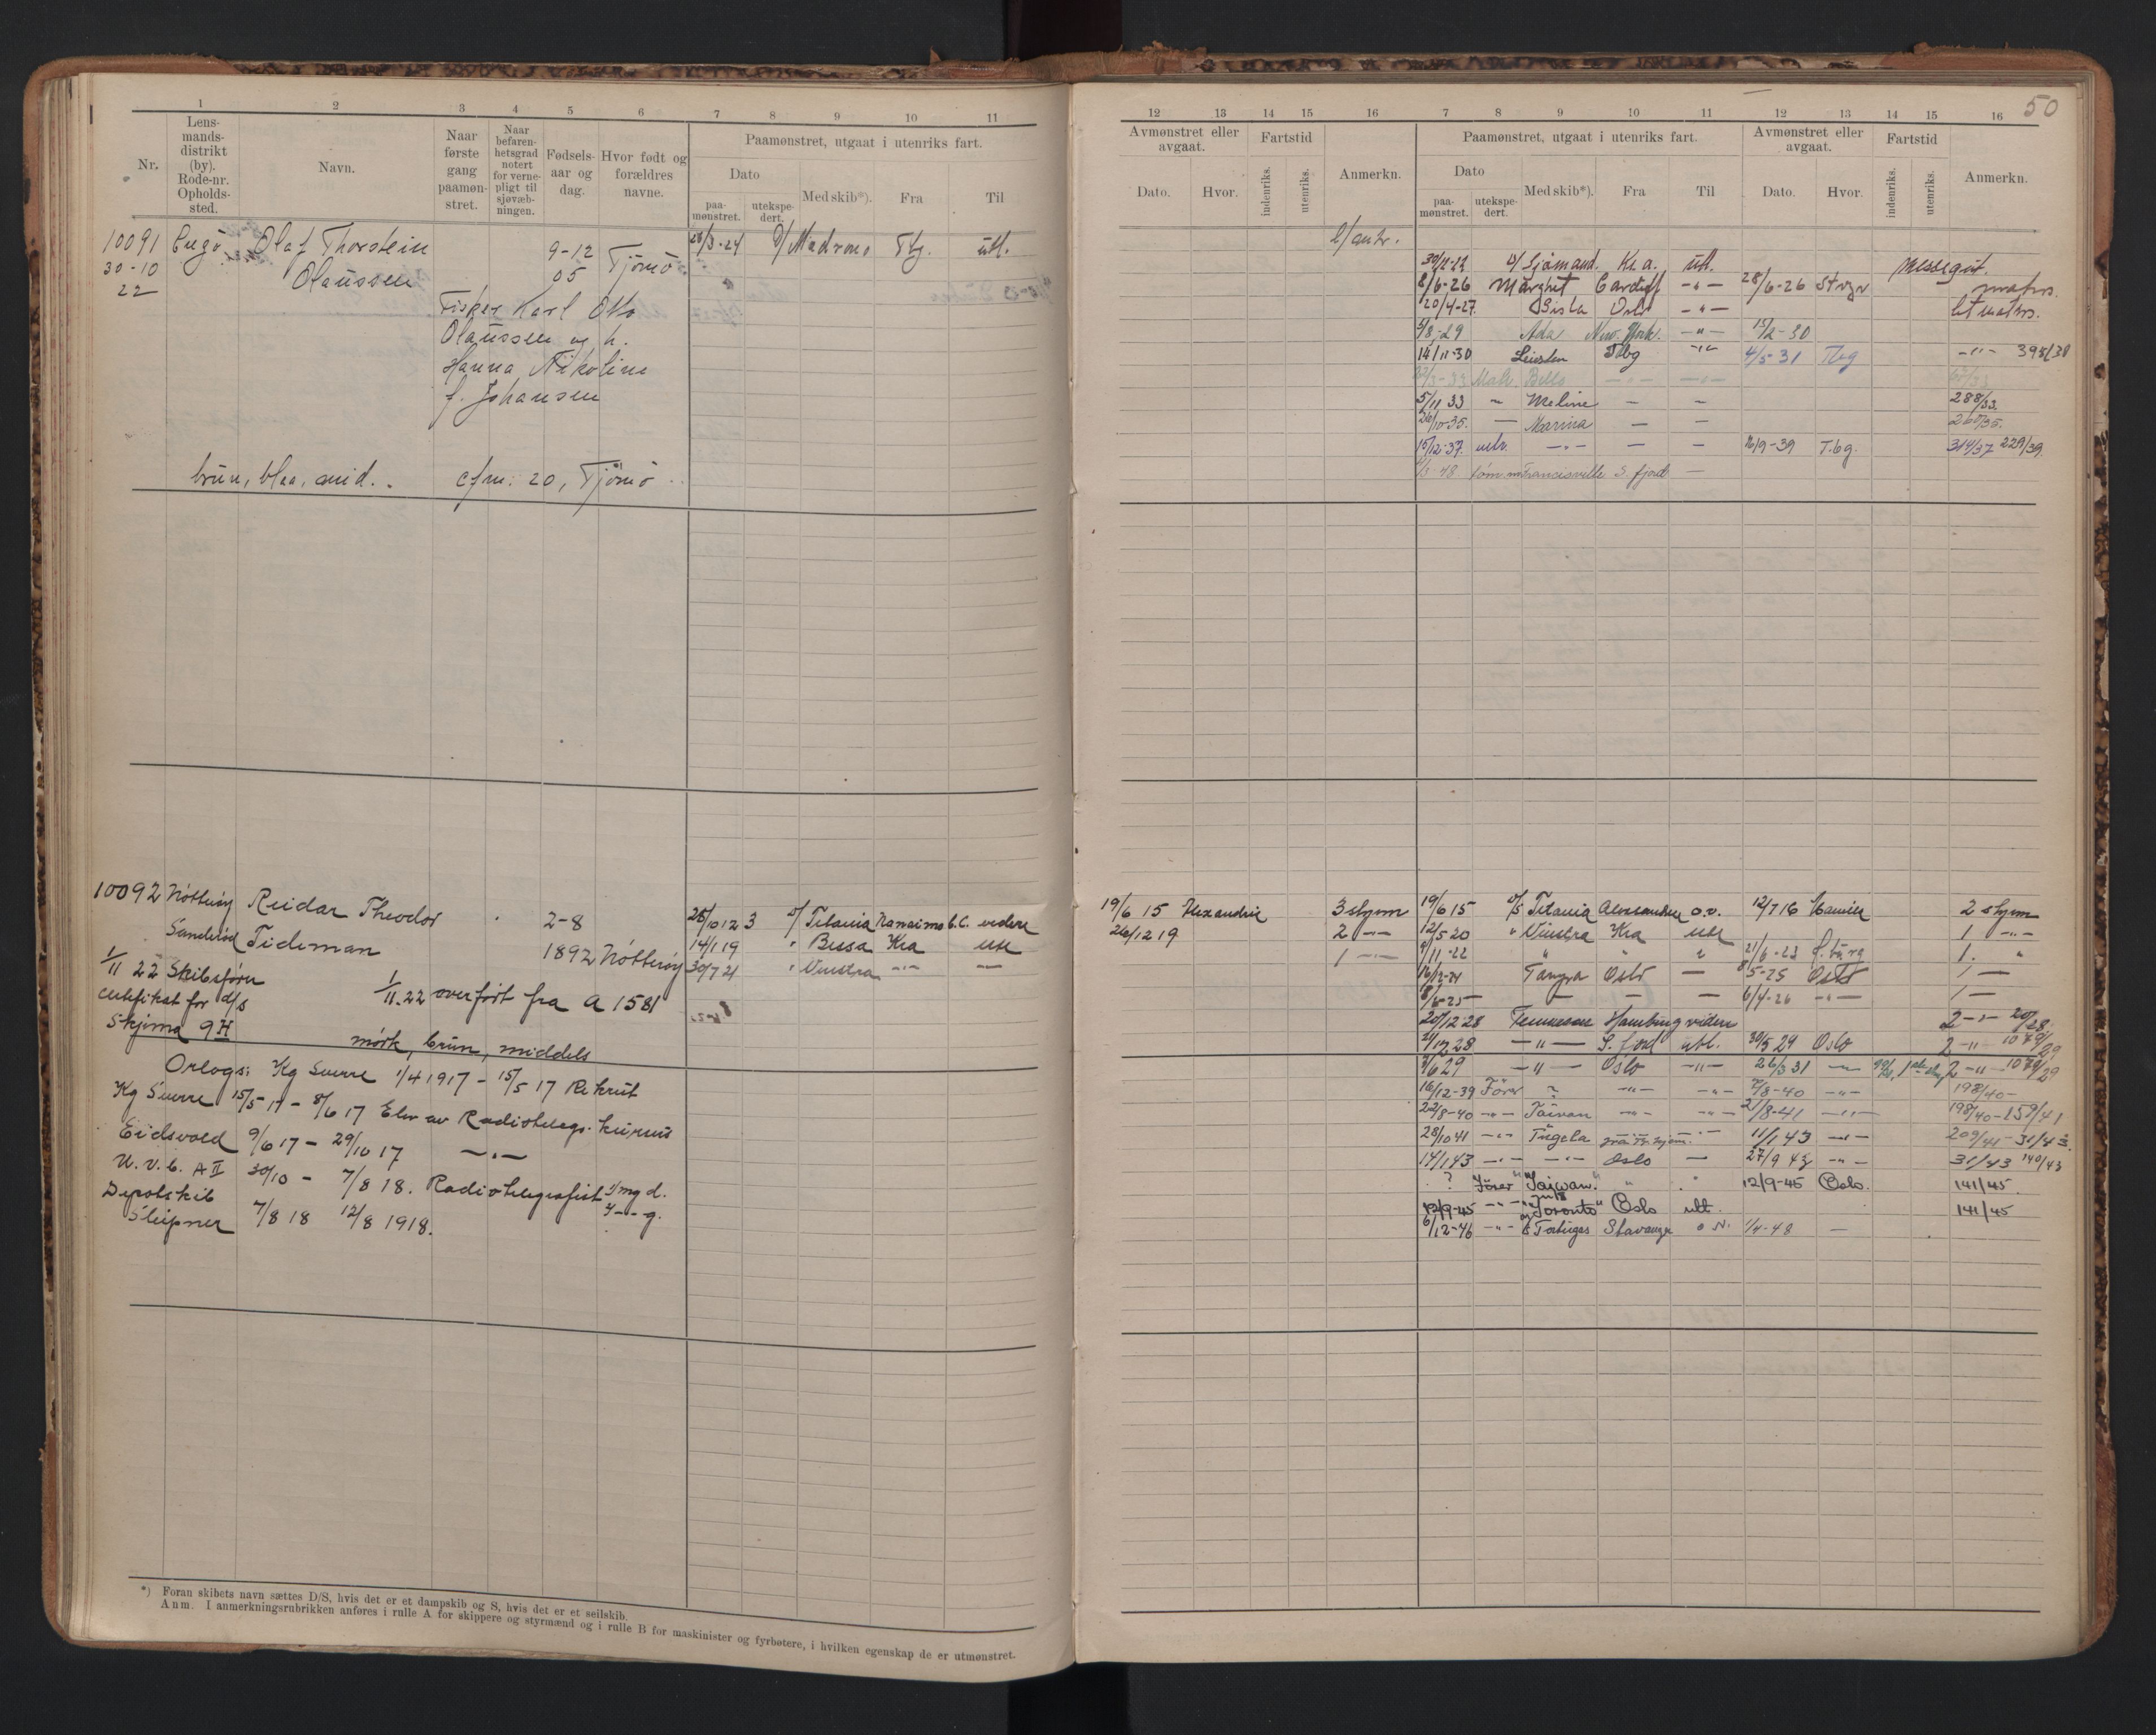 50
1 2 3 4 5 6 7 8 9 10 11
Nr.
Lens-
mands-
distrikt
(by).
Rode-nr.
Opholds-
sted.
Navn.
Naar
første
gang
paamøn-
stret.
Naar
befaren-
hetsgrad
notert
for verne-
pligt til
sjøvæb-
ningen.
Fødsels-
aar og
dag.
Hvor født og
forældres
navne.
Paamønstret, utgaat i utenriks fart.
Dato
paa-
mønstret.
utekspe-
dert.
Med skib*).
Fra
Til
10091 Olaf Thorstein 9-12 Tjømø 28/3-24 D/ Madrono Tbg. utl.
30-10 Olaussen 05
22
Fisker Karl Otto
Olaussen og h.
Hanna Nikoline
f. Johansen
brun, blaa, mid. cfm. 20, Tjømø
10092 Nøtterøy Reidar Theodor 2-8 25/10 12 3 D/ Titania Nanaimo B.C. videre
Sanderød Tideman 1892 Nøtterøy 14/1 19 " Bessa Kra utl
1/11 22 Skibsfører 30/7 21 " Vinstra -"- —
certifikat for d/s 1/11.22 overført fra A 1581
Skjema 9H
mørk, brun, middels
Orlogs: Kg Sverre 1/4 1917 - 15/5 17 Rekrut
Kg Sverre 15/5 17 - 8/6 17 Elev av Radiotelegr. kursus
Eidsvold 9/6 17 - 29/10 17 -"-
U.v.b. A II 30/10 - 7/8 18. Radiotelegrafist
Depotskib
Sleipner 7/8 18 12/8 1918.
*) Foran skibets navn sættes D/S, hvis det er et dampskib og S, hvis det er et seilskib.
Anm. I anmerkningsrubrikken anføres i rulle A for skippere og styrmænd og i rulle B for maskinister og fyrbøtere, i hvilken egenskap de er utmønstret.
12 13 14 15 16 7 8 9 10 11 12 13 14 15 16
Avmønstret eller
avgaat.
Dato.
Hvor.
Fartstid
indenriks.
utenriks.
Anmerkn.
Paamønstret, utgaat i utenriks fart.
Dato
paa-
mønstret.
utekspe-
dert.
Med skib*).
Fra
Til
Avmønstret eller
avgaat.
Dato.
Hvor.
Fartstid
indenriks.
utenriks.
Anmerkn.
D/ Sjømand. Kr.a. utl. Messegut.
8/6-26 Margrit Cardiff -"- 28/6-26 matrs.
20/4-27. Oslo -"- let matrs.
Ada New York. -"- 15/2-30
14/11-30 Tbg -"- 4/5-31 Tbg -"- 395/30
Matr. Bello -"- -"-
5/11 33 " Meline — — 288/33.
26/10-35. — Marina — — 260/35.
15/12-37. -"- — — 16/9-39 T.bg. 314/37 229/39.
tøm.m Francisville S.fjord —
19/6 15 Alexandria 3 styrm 19/6 15 D/S Titania Alexandria o.v. 12/7 16 2 styrm
26/12 19 2 -"- 12/5 20 " Vinstra Kra utl 1 -"-
1 -"- 4/11-22 " " " 21/6-23 1. "
16/12-24 Tanyra Oslo — 8/5-25 Oslo 1 —
8/5-25 — — — — 6/4-26 -"- 1 —
20/12 28 Tennessee Hamburg videre 2 -"-
-"- S.fjord utl. 30/5 29 Oslo 2 -"- 1079/29
3/6 29 -"- Oslo -"- 26/3 31 -"- 2 -"- 1079/29
16/12-39 Fører ? -"- -"- -"- 198/40-
22/8-40 -"- Taiwan -"- -"- 21/8-41 -"- 198/40-159/41
28/10 41 -"- Tugela 11/1 43 -"- 209/41-31/43.
14/1 43 -"- -"- Oslo — 27/9 43 -"- 31/43 140/43
? Fører "Taiwan" " " 12/9-45 Oslo. 141/45.
12/9-45 -"- "Toronto" Oslo utl. 141/45
6/12-46 -"- Stavanger 1/4-48 —